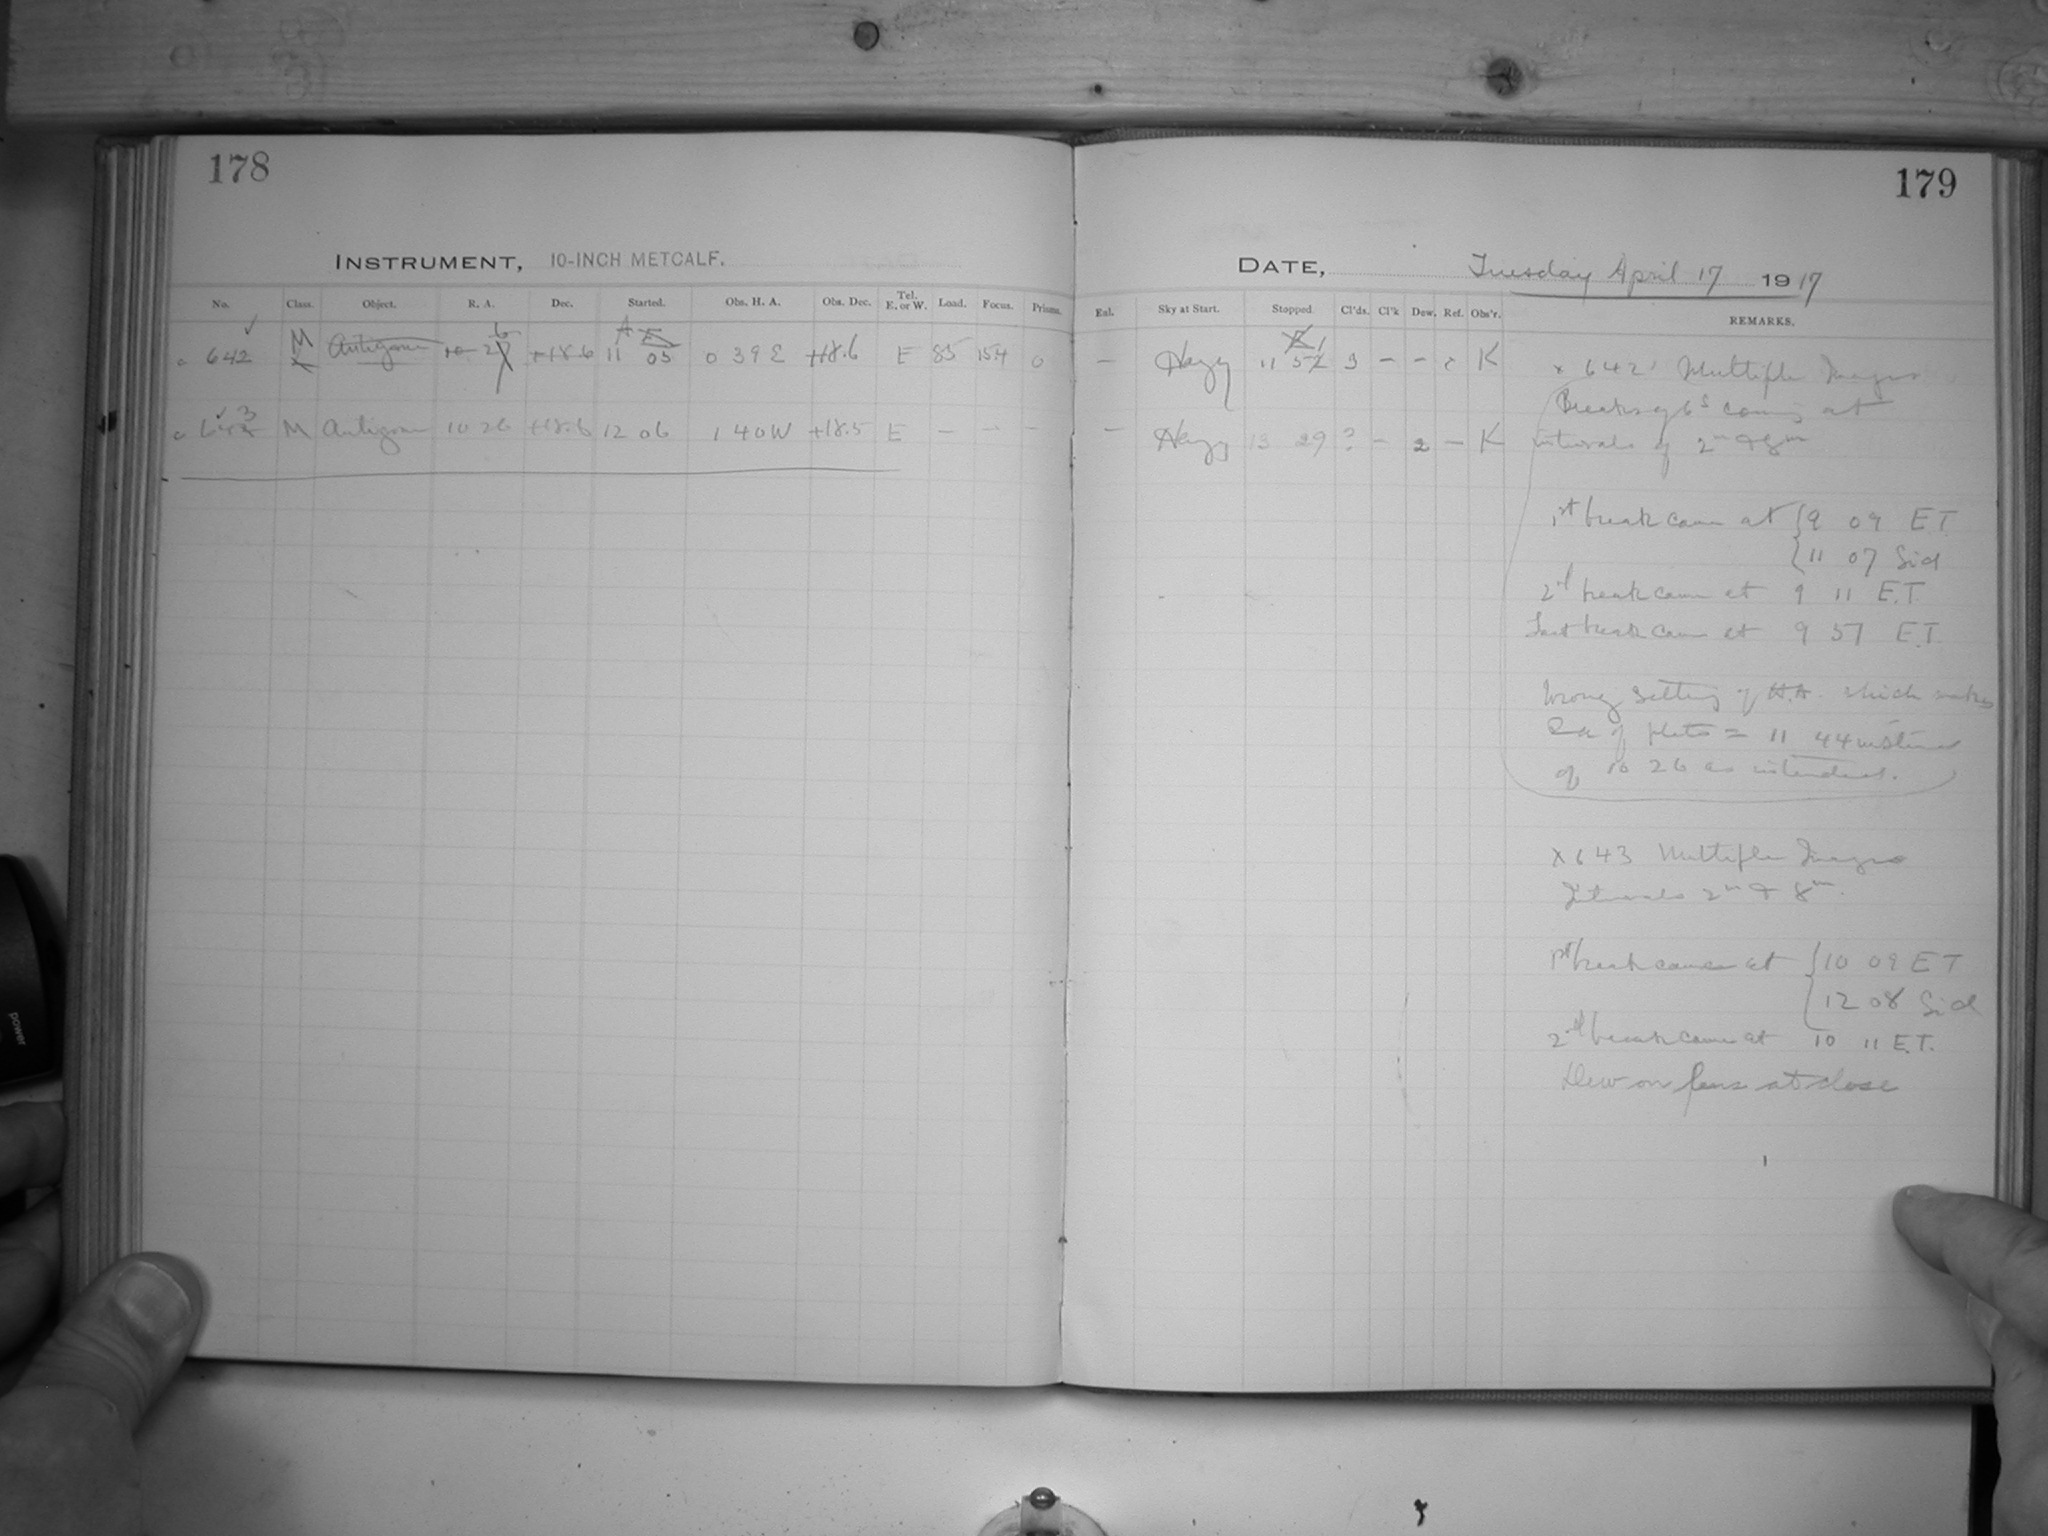 178
179
INSTRUMENT, 10-INCH METCALF.
DATE, Tuesday April 17 1917
No. Class. Object. R. A. Dec. Started. Obs. H. A. Obs. Dec. Tel. E. or W. Load. Focus. Prisms. Enl. Sky at Start. Stopped. Cl'ds. Cl'k Dew. Ref. Obs'r. REMARKS.
642 M Antigone 10 26 +18.6 11 05 0 39 E +18.6 E 85 154 0 – Hazy 11 51 3 – – K
643 M Antigone 10 26 +18.6 12 06 1 40 W +18.5 E – – – – Hazy 13 29 ? – 2 – K
x 642 Multiple Images
Breaks of 6s coming at
intervals of 2m & 8m
1st break came at { 9 09 E.T.
{ 11 07 Sid
2d break came at 9 11 E.T.
Last break came at 9 57 E.T.
Wrong setting of H.A. which makes
Ra of plate = 11 44 instead
of 10 26 as intended.
x 643 Multiple Images
Intervals 2m & 8m.
1st break came at { 10 09 E T
{ 12 08 Sid
2d break came at 10 11 E.T.
Dew on lens at close
power